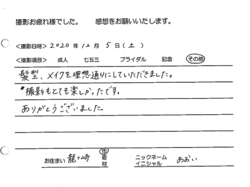 撮影お疲れ様でした。 感想をお願いいたします。
<撮影日時> 2020年 12月 5日 (土)
<撮影項目> 成人 七五三 ブライダル 記念 その他
髪型、メイクを理想通りにしていただきました。
撮影もとても楽しかったです。
ありがとうございました。
お住まい 龍ヶ崎 市 ニックネーム イニシャル あおい